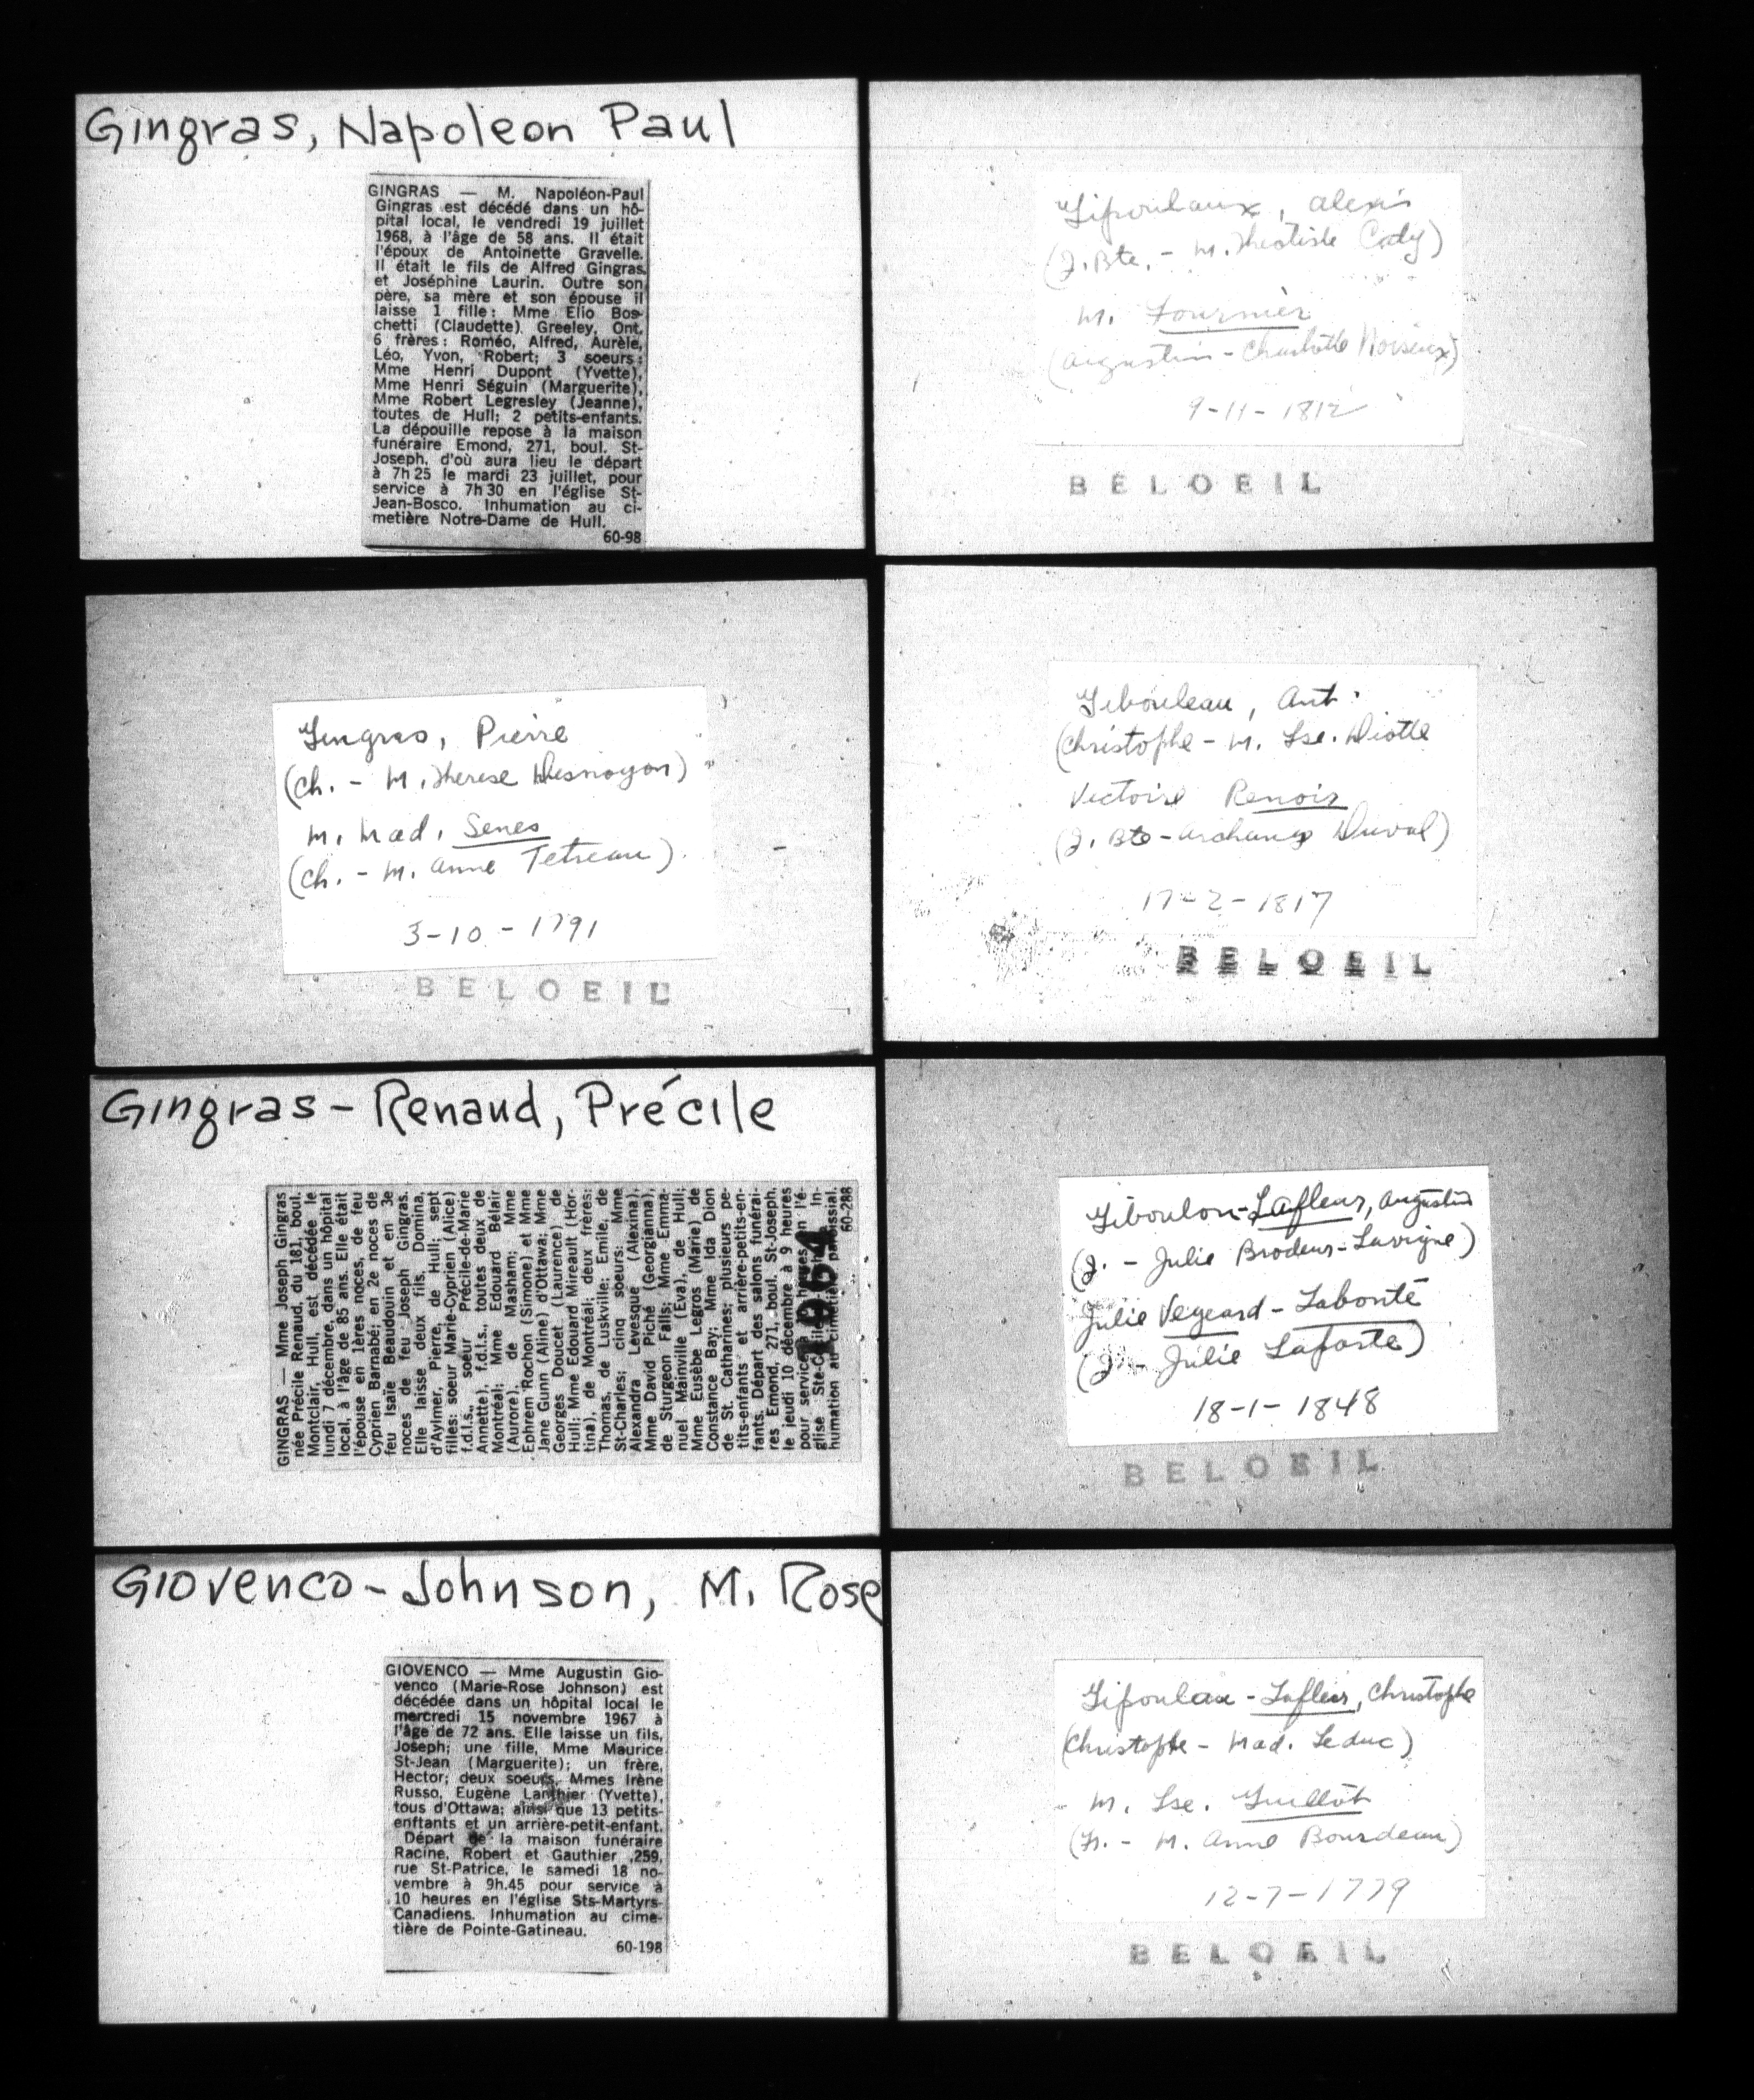 Gingras, Napoleon Paul
GINGRAS — M. Napoléon-Paul
Gingras est décédé dans un hô-
pital local, le vendredi 19 juillet
1968, à l'âge de 58 ans. Il était
l'époux de Antoinette Gravelle.
Il était le fils de Alfred Gingras
et Joséphine Laurin. Outre son
père, sa mère et son épouse il
laisse 1 fille: Mme Elio Bos-
chetti (Claudette) Greeley, Ont.
6 frères: Roméo, Alfred, Aurèle,
Léo, Yvon, Robert; 3 soeurs:
Mme Henri Dupont (Yvette),
Mme Henri Séguin (Marguerite),
Mme Robert Legresley (Jeanne),
toutes de Hull; 2 petits-enfants.
La dépouille repose à la maison
funéraire Emond, 271, boul. St-
Joseph, d'où aura lieu le départ
à 7h 25 le mardi 23 juillet, pour
service à 7h 30 en l'église St-
Jean-Bosco. Inhumation au ci-
metière Notre-Dame de Hull.
60-98
Gingras, Pierre
(Ch. - M. Therese Desnoyon)
M. Mad. Senes
(Ch. - M. Anne Tetreau)
3-10-1791
BELOEIL
Gingras-Renaud, Précile
GINGRAS — Mme Joseph Gingras
née Précile Renaud, du 181, boul.
Montclair, Hull, est décédée le
lundi 7 décembre, dans un hôpital
local, à l'âge de 85 ans. Elle était
l'épouse en 1ères noces, de feu
Cyprien Barnabé; en 2e noces de
feu Isaïe Beaudouin et en 3e
noces de feu Joseph Gingras.
Elle laisse deux fils, Domina,
d'Aylmer, Pierre, de Hull; sept
filles: soeur Marie-Cyprien (Alice)
f.d.l.s., soeur Précile-de-Marie
Annette), f.d.l.s., toutes deux de
Montréal; Mme Edouard Bélair
(Aurore), de Masham; Mme
Ephrem Rochon (Simone) et Mme
Jane Gunn (Aline) d'Ottawa; Mme
Georges Doucet (Laurence) de
Hull; Mme Edouard Mireault (Hor-
tina), de Montréal; deux frères:
Thomas, de Luskville; Emile, de
St-Charles; cinq soeurs: Mme
Alexandra Levesque (Alexina),
Mme David Piché (Georgianna),
de Sturgeon Falls; Mme Emma-
nuel Mainville (Eva), de Hull;
Mme Eusèbe Legros (Marie) de
Constance Bay; Mme Ida Dion
de St. Catharines; plusieurs pe-
tits-enfants et arrière-petits-en-
fants. Départ des salons funérai-
res Emond, 271, boul. St-Joseph,
le jeudi 10 décembre à 9 heures
pour service heures en l'é-
glise Ste-C In-
humation au cimetière paroissial.
60-288
1964
Giovenco-Johnson, M. Rose
GIOVENCO — Mme Augustin Gio-
venco (Marie-Rose Johnson) est
décédée dans un hôpital local le
mercredi 15 novembre 1967 à
l'âge de 72 ans. Elle laisse un fils,
Joseph; une fille, Mme Maurice
St-Jean (Marguerite); un frère,
Hector; deux soeurs, Mmes Irène
Russo, Eugène Lanthier (Yvette),
tous d'Ottawa; ainsi que 13 petits-
enftants et un arrière-petit-enfant.
Départ de la maison funéraire
Racine, Robert et Gauthier ,259,
rue St-Patrice, le samedi 18 no-
vembre à 9h.45 pour service à
10 heures en l'église Sts-Martyrs-
Canadiens. Inhumation au cime-
tière de Pointe-Gatineau.
60-198
Gipoulaux, Alexis
(J. Bte. - M. Theotiste Caty)
M. Fournier
(Augustin - Charlotte Noiseux)
9-11-1812
BELOEIL
Gibouleau, Ant.
(Christophe - M. Lse. Diotte
Victoire Renoir
(J. Bte - Archange Duval)
17-2-1817
BELOEIL
Giboulon-Lafleur, Augustin
(J. - Julie Brodeur-Lavigne)
Julie Vegeard-Labonté
(J. - Julie Laporte)
18-1-1848
BELOEIL
Gipoulau-Lafleur, Christophe
(Christophe - Mad. Leduc)
M. Lse. Guillôt
(Fr. - M. Anne Bourdeau)
12-7-1779
BELOEIL